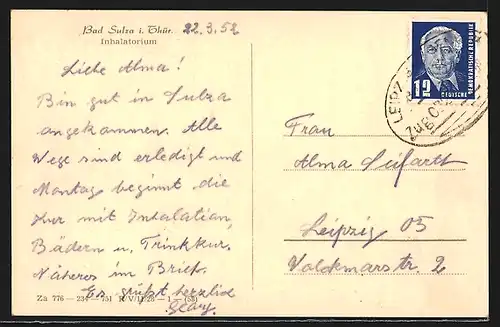 Bad Sulza i. Thür.
Inhalatorium
22.3.52
Liebe Alma!
Bin gut in Sulza
angekommen. Alle
Wege sind erledigt und
Montag beginnt die
Kur mit Inhalation,
Bädern u. Trinkkur.
Näheres im Brief.
Es grüßt herzlich
Za 776 - 234 751 R/V/11/28 - 1 -
12
DEUTSCHE
DEMOKRATISCHE REPUBLIK
LEIPZ
Zug
Frau
Alma Seifarth
Leipzig O5
Volckmarstr. 2